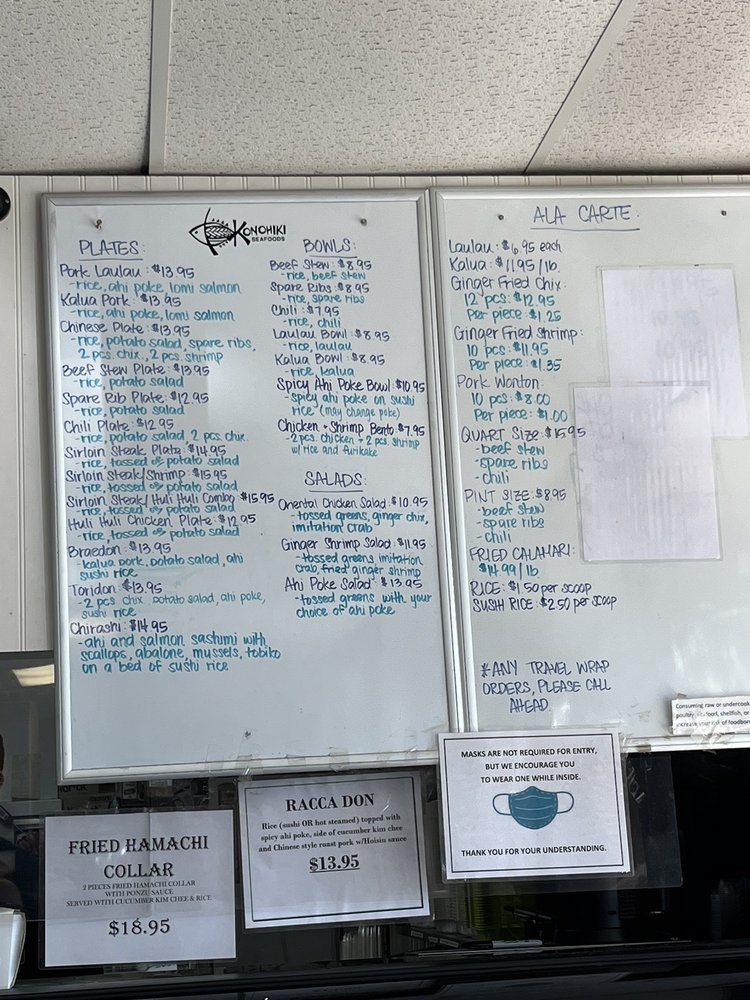 KONOHIKI
SEAFOODS
PLATES:
Pork Laulau: $13.95
-rice, ahi poke, lomi salmon
Kalua Pork: $13.95
-rice, ahi poke, lomi salmon
Chinese Plate: $13.95
-rice, potato salad, spare ribs,
2 pcs. chix., 2 pcs. shrimp
Beef Stew Plate: $13.95
-rice, potato salad
Spare Rib Plate: $12.95
-rice, potato salad
Chili Plate: $12.95
-rice, potato salad, 2 pcs. chix.
Sirloin Steak Plate: $14.95
-rice, tossed or potato salad
Sirloin Steak/Shrimp: $15.95
-rice, tossed or potato salad
Sirloin Steak/Huli Huli Combo: $15.95
-rice, tossed or potato salad
Huli Huli Chicken Plate: $12.95
-rice, tossed or potato salad
Braedon: $13.95
-kalua pork, potato salad, ahi
sushi rice
Toridon: $13.95
-2 pcs chix, potato salad, ahi poke,
sushi rice
Chirashi: $14.95
-ahi and salmon sashimi with
scallops, abalone, mussels, tobiko
on a bed of sushi rice
BOWLS:
Beef Stew: $8.95
-rice, beef stew
Spare Ribs: $8.95
-rice, spare ribs
Chili: $7.95
-rice, chili
Laulau Bowl: $8.95
-rice, laulau
Kalua Bowl: $8.95
-rice, kalua
Spicy Ahi Poke Bowl: $10.95
-spicy ahi poke on sushi
rice (may change poke)
Chicken + Shrimp Bento: $7.95
-2 pcs. chicken + 2 pcs. shrimp
w/ rice and furikake
SALADS:
Oriental Chicken Salad: $10.95
-tossed greens, ginger chix,
imitation crab
Ginger Shrimp Salad: $11.95
-tossed greens, imitation
crab, fried ginger shrimp
Ahi Poke Salad: $13.95
-tossed greens with your
choice of ahi poke
ALA CARTE:
Laulau: $6.95 each
Kalua: $11.95/lb.
Ginger Fried Chix:
12 pcs: $12.95
Per piece: $1.25
Ginger Fried Shrimp:
10 pcs: $11.95
Per piece: $1.35
Pork Wonton:
10 pcs: $8.00
Per piece: $1.00
QUART SIZE: $15.95
-beef stew
-spare ribs
-chili
PINT SIZE: $8.95
-beef stew
-spare ribs
-chili
FRIED CALAMARI:
$14.99/lb.
RICE: $1.50 per scoop
SUSHI RICE: $2.50 per scoop
*ANY TRAVEL WRAP
ORDERS, PLEASE CALL
AHEAD.
Consuming raw or undercook
poultry, seafood, shellfish, or
increase your risk of foodbor
MASKS ARE NOT REQUIRED FOR ENTRY,
BUT WE ENCOURAGE YOU
TO WEAR ONE WHILE INSIDE.
THANK YOU FOR YOUR UNDERSTANDING.
RACCA DON
Rice (sushi OR hot steamed) topped with
spicy ahi poke, side of cucumber kim chee
and Chinese style roast pork w/Hoisin sauce
$13.95
FRIED HAMACHI
COLLAR
2 PIECES FRIED HAMACHI COLLAR
WITH PONZU SAUCE
SERVED WITH CUCUMBER KIM CHEE & RICE
$18.95